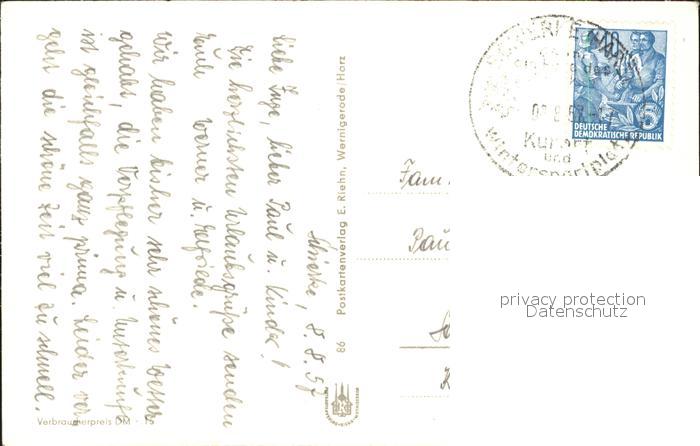 Schierke, 8.8.57
Liebe Inge, lieber Paul u. Kinder!
Die herzlichsten Urlaubsgrüße senden
Euch Werner u. Elfriede.
Wir haben bisher sehr schönes Wetter
gehabt, die Verpflegung u. Unterkunft
ist gleichfalls ganz prima. Leider ver-
geht die schöne Zeit viel zu schnell.
Verbraucherpreis DM
86 Postkartenverlag E. Riehn, Wernigerode/Harz
SCHIERKE
Kurort
und
Wintersportplatz
5
DEUTSCHE
DEMOKRATISCHE REPUBLIK
Fam.
Pau
privacy protection
Datenschutz